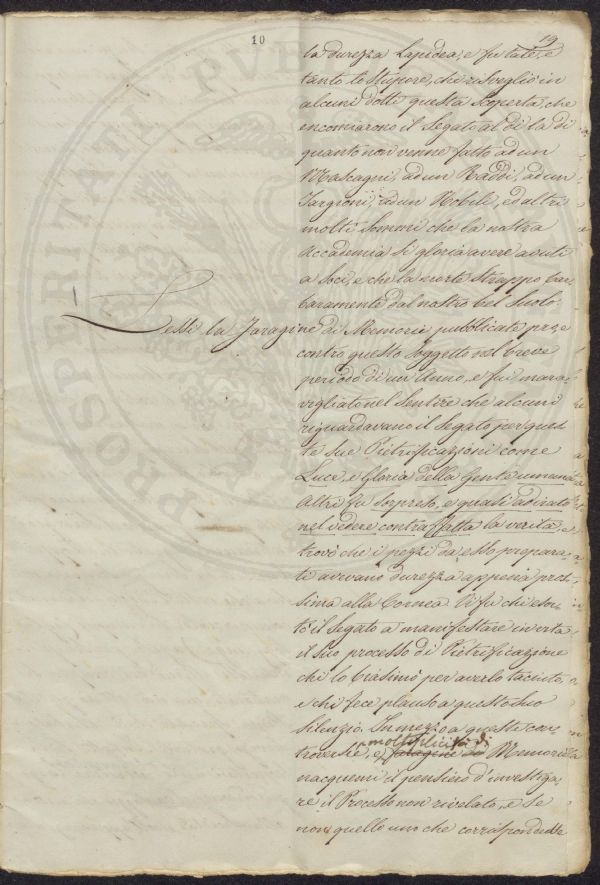 10
19
la durezza lapidea, e fu tale, e
tanto lo stupore, chi risveglio in
alcuni dotti questa scoperta, che
encomiarono il Segato al di la di
quanto non venne fatto ad un
Mascagni, ad un Raddi, ad un
Targioni, ad un Nobili, ed altri
molti sommi che la nostra
Accademia si gloria avere avuti
a soci, e che la morte strappò bar=
baramente dal nostro bel suolo.
Lessi la faragine di Memorie pubblicate pro, e
contro questo soggetto nel breve
periodo di un Anno, e fui mara
vigliato nel sentire che alcuni
riguardavano il Segato per ques
te sue Pietrificazioni come
Luce, e Gloria della Gente umana
altri fu sorpreso, e quasi adirato
nel vedere contraffatta la verità, e
trovò che i pezzi da esso prepara=
ti avevano durezza appena pros
sima alla Cornea. Vi fu chi esor
tò il Segato a manifestare in vita
il suo processo di Pietrificazione
chi lo biasimò per averlo taciuto,
e chi fece plauso a questo suo
silenzio. In mezzo a queste con
troversie, e moltiplicità di Memorie
nacquemi il pensiero d'investiga=
re il Processo non rivelato, e se
non quello uno che corrispondesse
PROSPERITATI PUBL